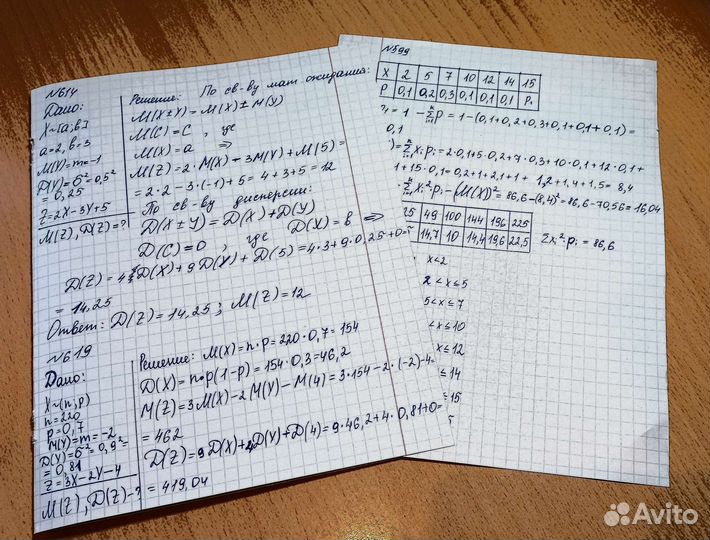 N614
Дано:
X~[a;b]
a=2, b=3
M(Y)=m=-1
D(Y)=б²=0,5²
= 0,25
Z=2X-3Y+5
M(Z), D(Z)=?
Решение: По св-ву мат. ожидания:
M(X±Y)=M(X)±M(Y)
M(C)=C, где
M(X)=a ⇒
M(Z)=2·M(X)-3M(Y)+M(5)=
=2·2-3·(-1)+5=4+3+5=12
По св-ву дисперсии:
D(X±Y)=D(X)+D(Y)
D(C)=0, где D(X)=b ⇒
D(Z)=4D(X)+9D(Y)+D(5)=4·3+9·0,25+0=
=14,25
Ответ: D(Z)=14,25; M(Z)=12
N619
Дано:
X~(n;p)
n=220
p=0,7
M(Y)=m=-2
D(Y)=б²=0,9²=
=0,81
Z=3X-2Y-4
M(Z), D(Z)-?
Решение: M(X)=n·p=220·0,7=154
D(X)=n·p(1-p)=154·0,3=46,2
M(Z)=3M(X)-2M(Y)-M(4)=3·154-2·(-2)-4=
=462
D(Z)=9D(X)+4D(Y)+D(4)=9·46,2+4·0,81+0=
=419,04
N599
X 2 5 7 10 12 14 15
P 0,1 0,2 0,3 0,1 0,1 0,1 P₁
=1-Σp=1-(0,1+0,2+0,3+0,1+0,1+0,1)=
0,1
)=Σxᵢpᵢ=2·0,1+5·0,2+7·0,3+10·0,1+12·0,1+
1+15·0,1=0,2+1+2,1+1+1,2+1,4+1,5=8,4
Σxᵢ²pᵢ-(M(X))²=86,6-(8,4)²=86,6-70,56=16,04
25 49 100 144 196 225
14,7 10 14,4 19,6 22,5
Σxᵢ²pᵢ=86,6
x≤2
2<x≤5
5<x≤7
<x≤10
x≤12
≤14
=15
Avito